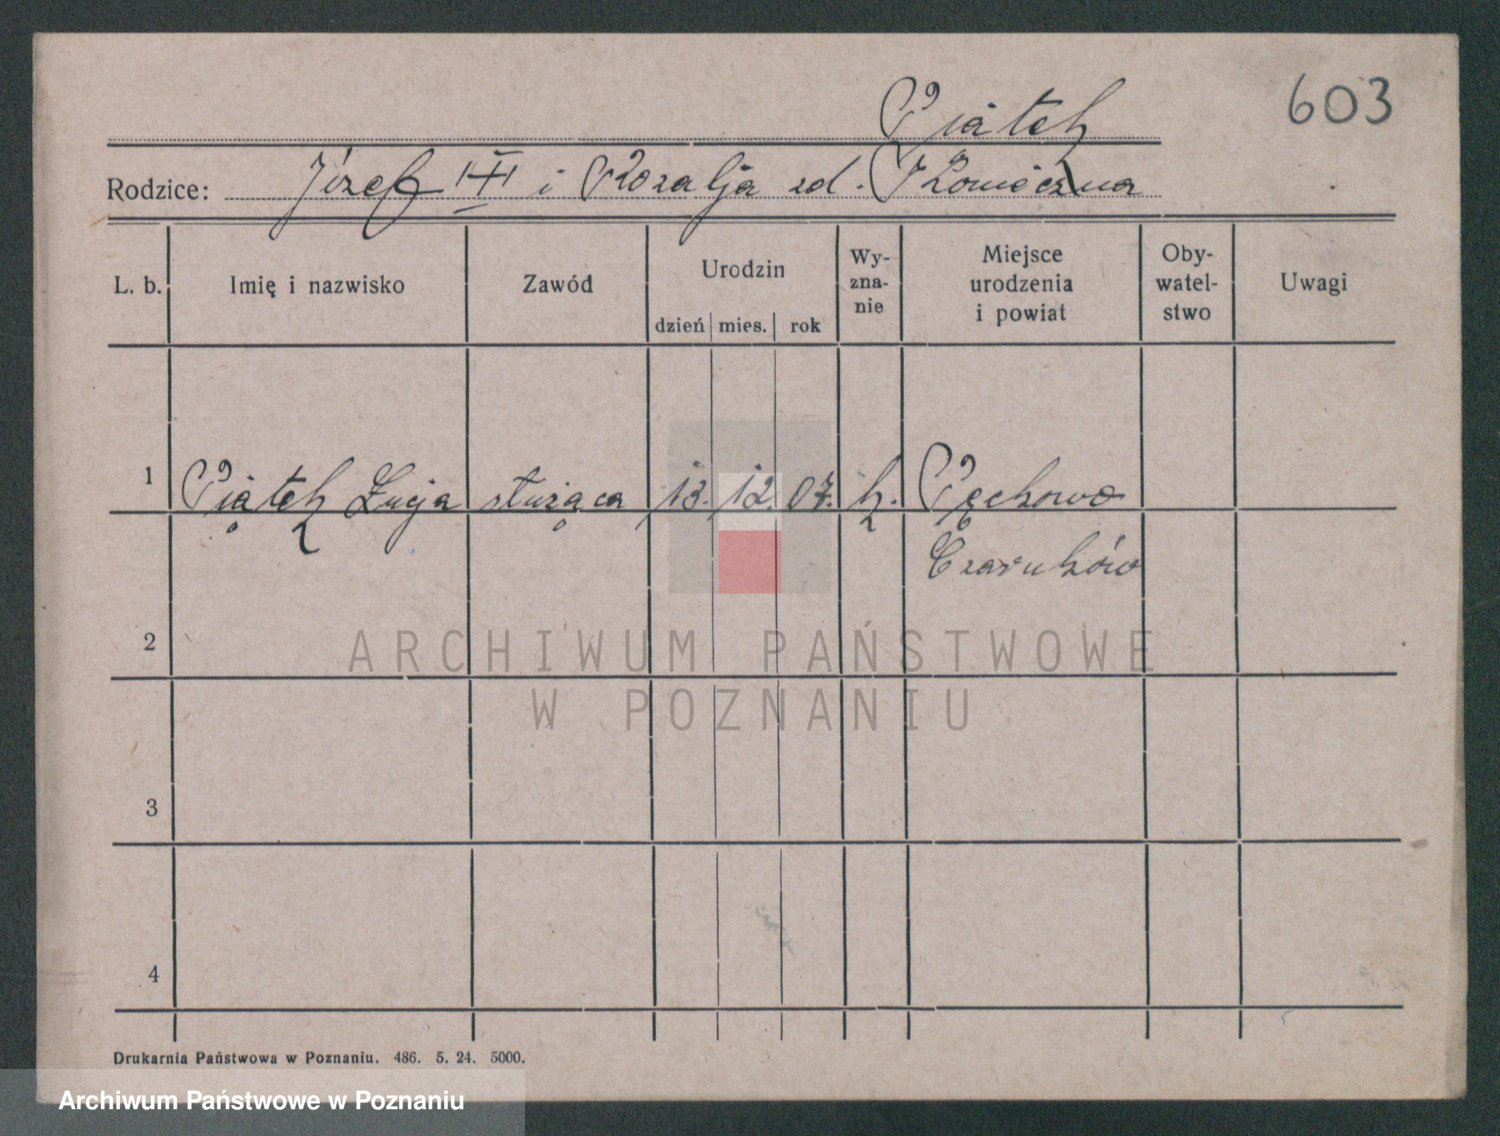 603
Piątek
Rodzice: Józef III i Rozalja zd. Słoneczna
L. b. Imię i nazwisko Zawód Urodzin dzień mies. rok Wyznanie Miejsce urodzenia i powiat Obywatelstwo Uwagi
1 Piątek Łucja służąca 13. 12. 07. k. Pęckowo
Czarnków
2
ARCHIWUM PAŃSTWOWE
W POZNANIU
3
4
Drukarnia Państwowa w Poznaniu. 486. 5. 24. 5000.
Archiwum Państwowe w Poznaniu